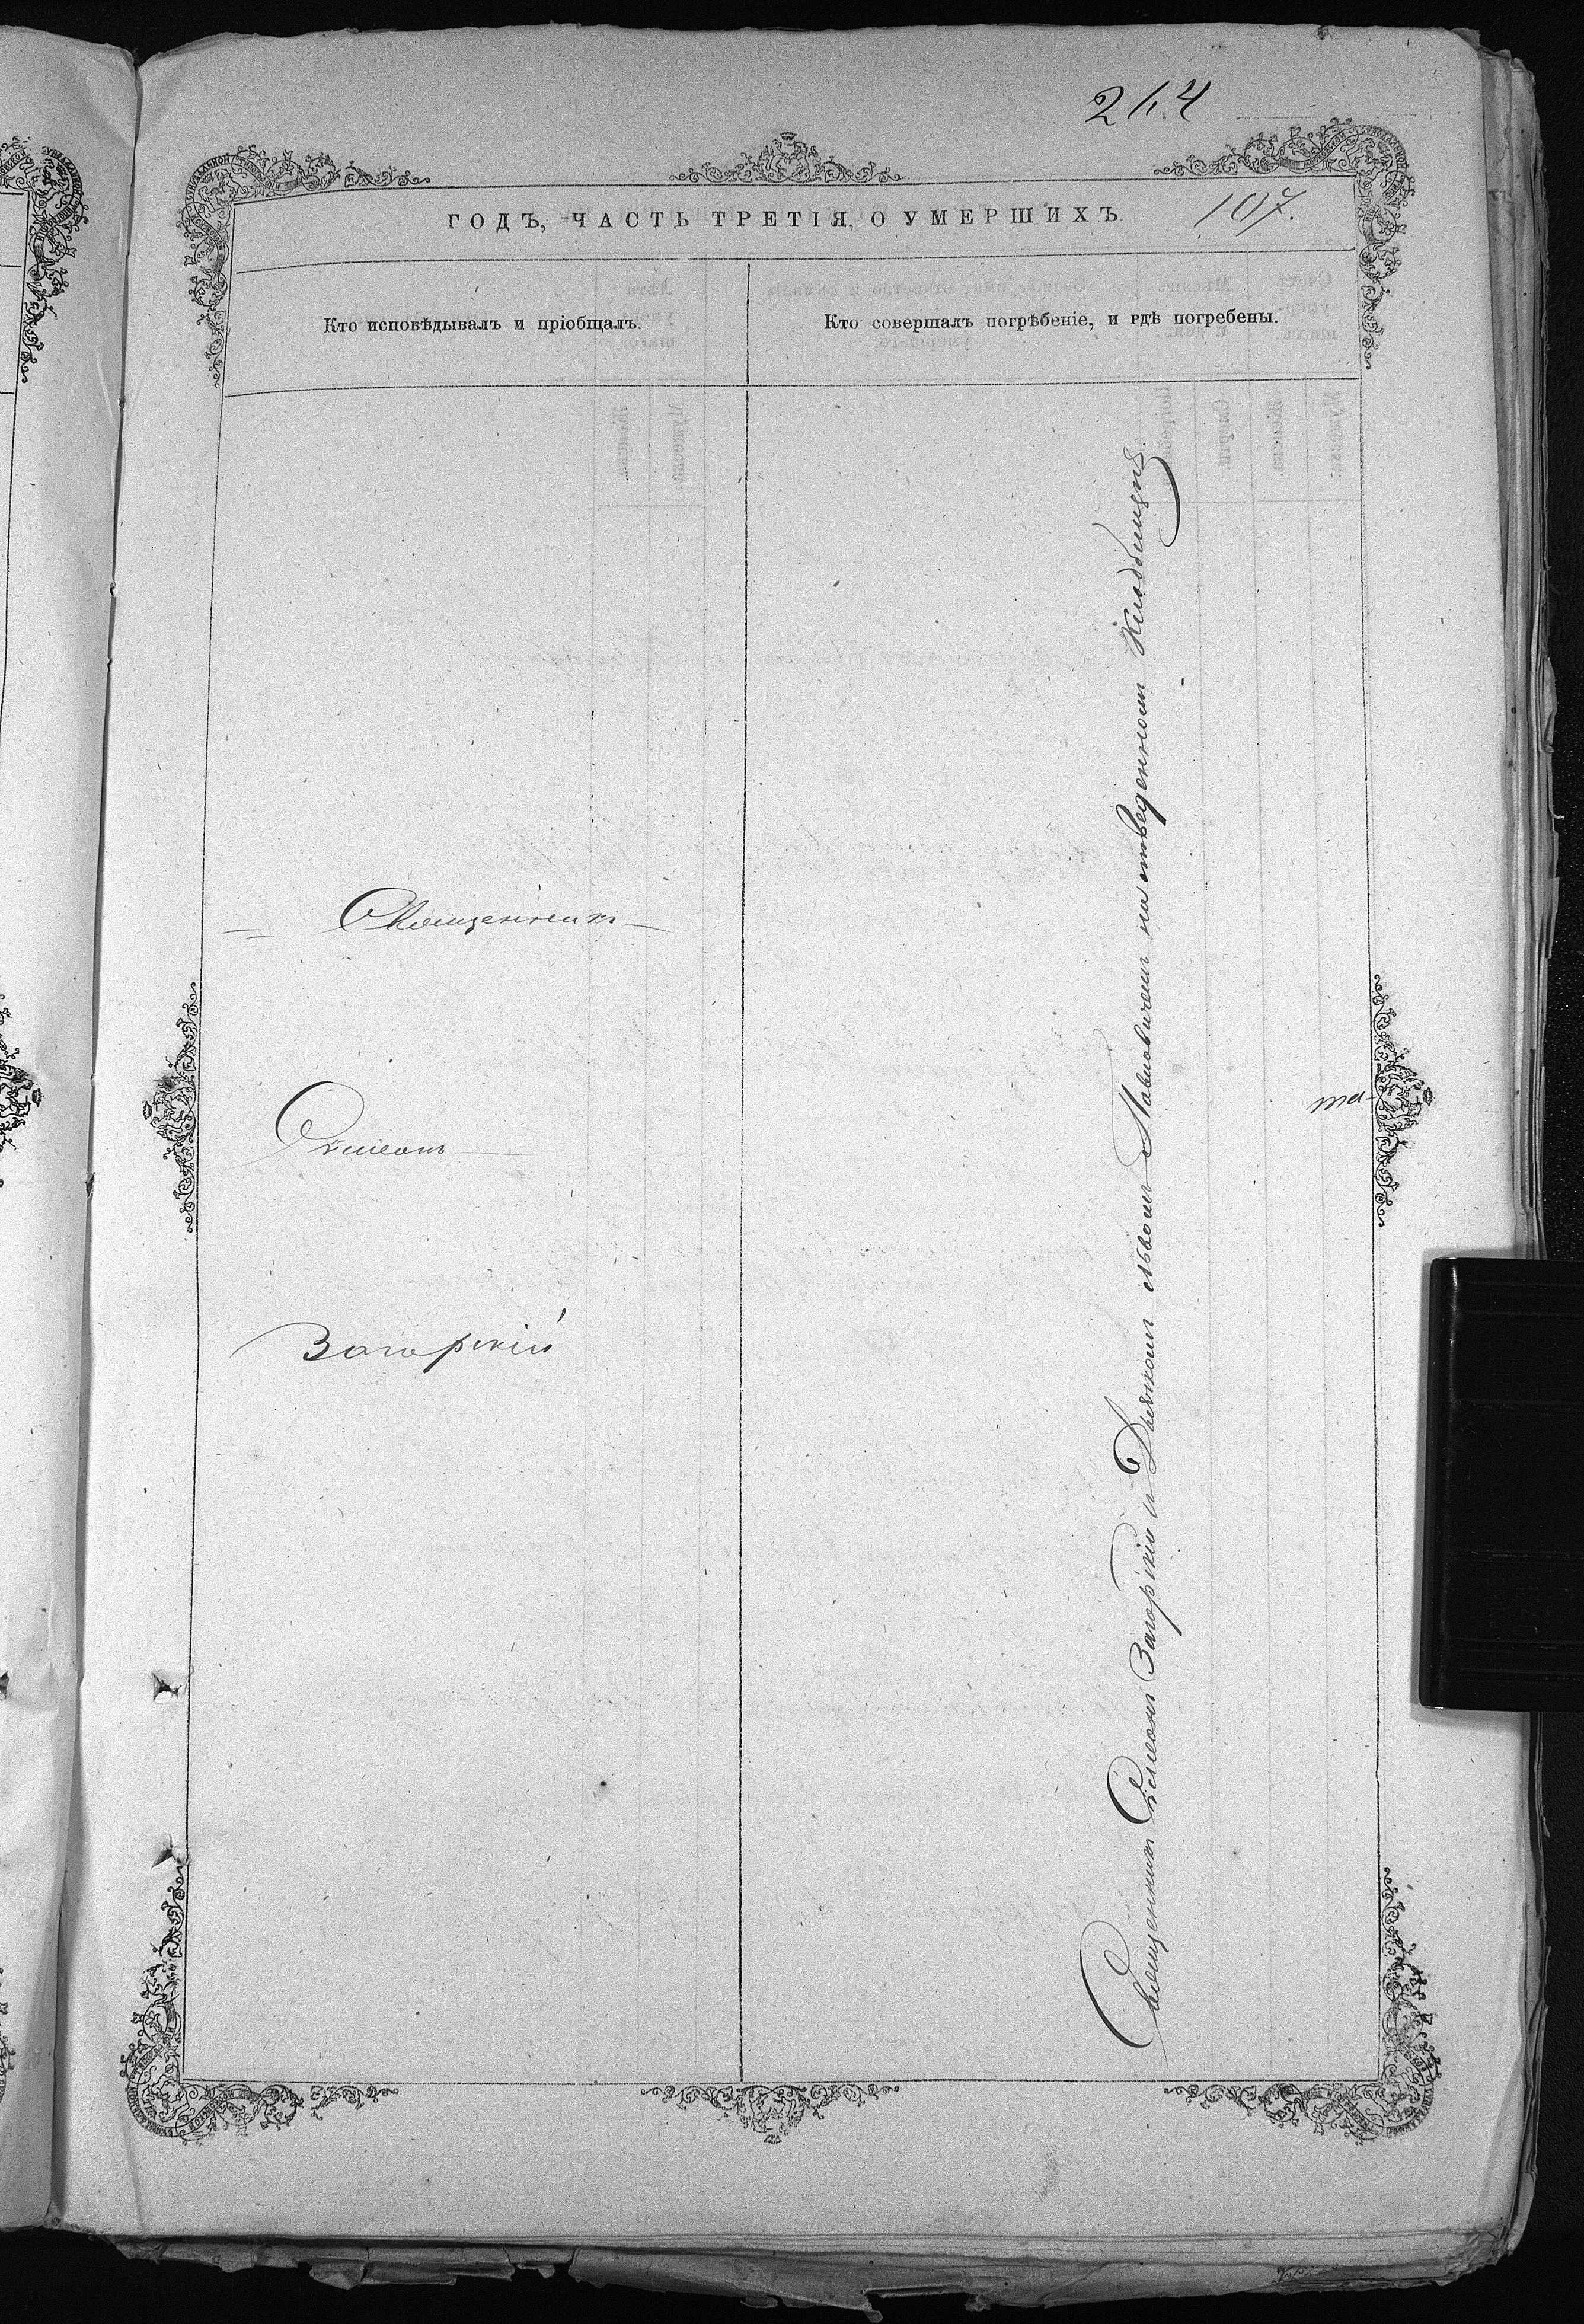 264
ГОДЪ, ЧАСТЬ ТРЕТІЯ, О УМЕРШИХЪ.
107.
Кто исповѣдывалъ и пріобщалъ.
Кто совершалъ погрѣбеніе, и гдѣ погребены.
Священникъ
Симеонъ
Загорскій
Священникъ Симеонъ Загорскій и Дьякомъ Львомъ на отведенномъ кладбищѣ